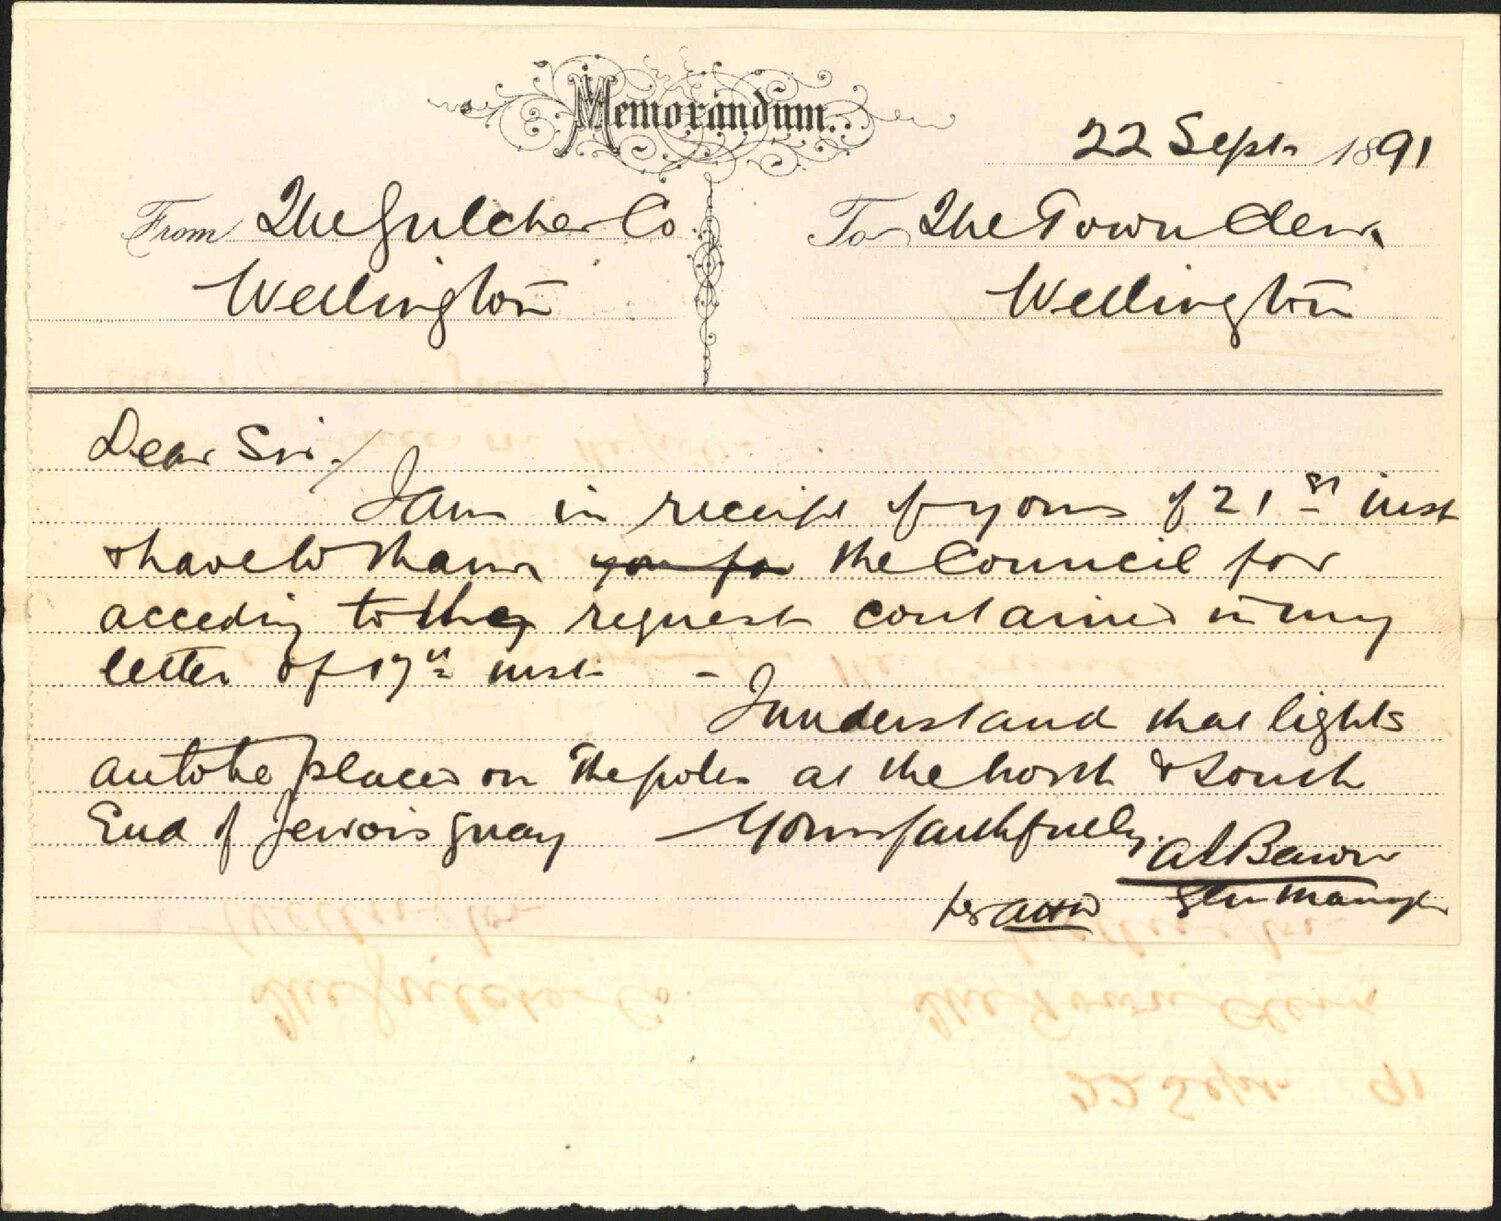 Memorandum.
22 Sept 1891
From The Gulcher Co
Wellington
To The Town Clerk
Wellington
Dear Sir/
I am in receipt of yours of 21st inst
& have to thank you for the Council for
acceding to the request contained in my
letter of 17th inst -
I understand that lights
are to be placed on the poles at the North & South
End of Jervois Quay Yours faithfully.
Gen Manager
per